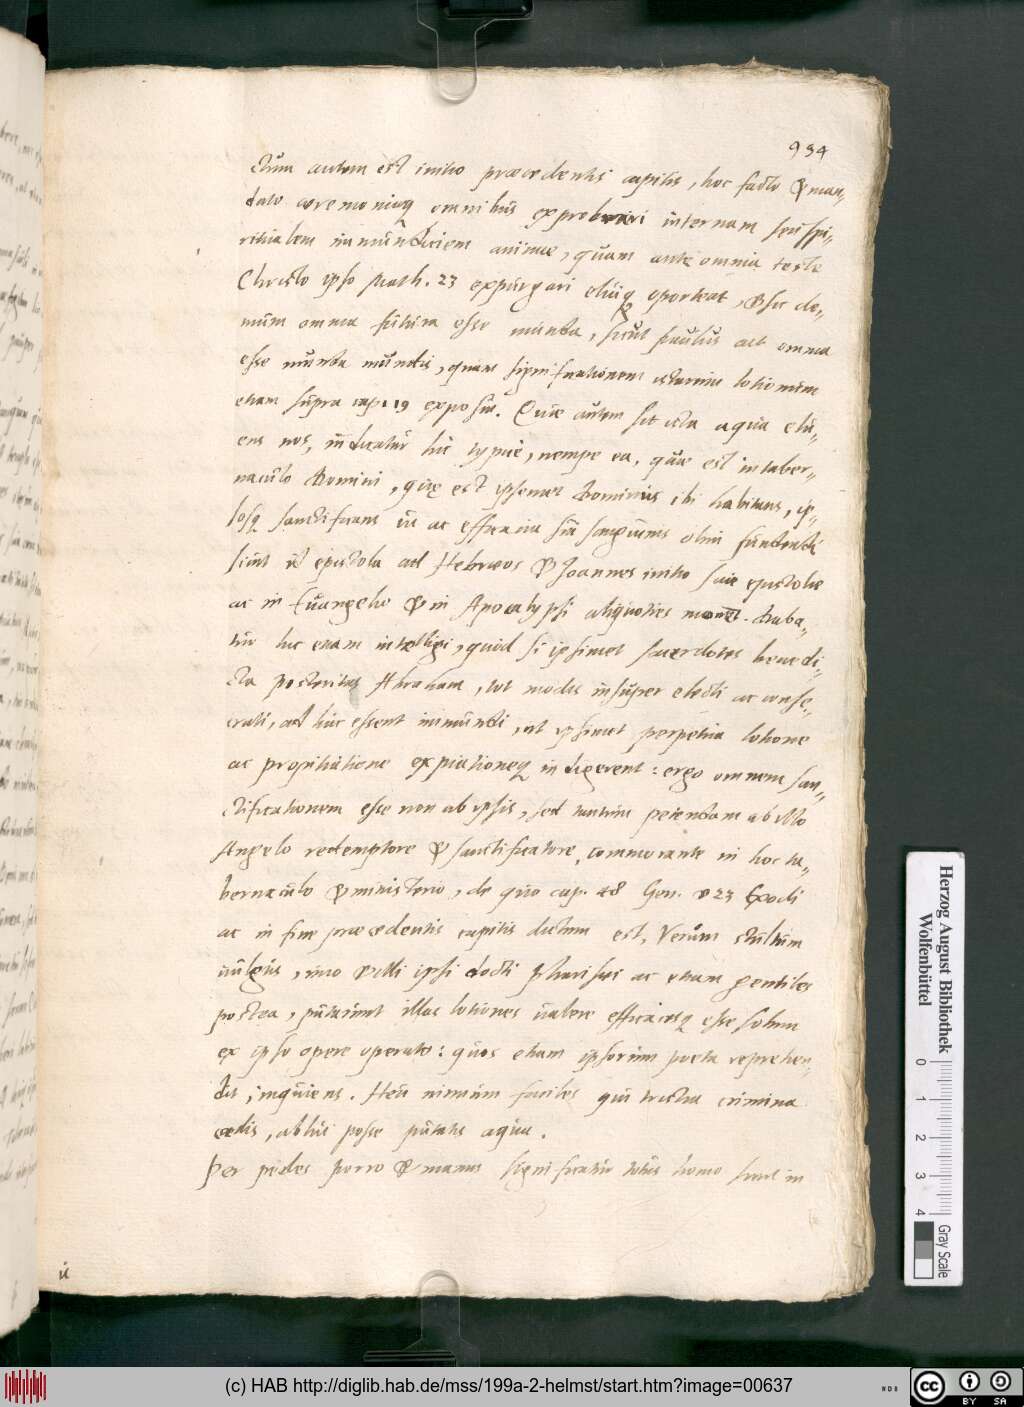 934
ctum autem est initio præcedentis capitis, hoc facto & man„
dato ceremoniaq omnibus exprobrari internam seu spi„
ritualem immunditiem animæ, quam ante omnia teste
Christo ipso Math. 23 expurgari eluiq oporteat, & sic de„
mum omnia futura esse munda, sicut & paulus ait omnia
esse munda mundis, quam significationem istarum lotionum
etiam supra cap. 19 exposui. Quæ autem sit ista aqua elu„
ens nos, indicatur hic typice, nempe ea, quæ est in taber„
naculo Domini, quę est ipsemet Dominus ibi habitans, ip„
sosq sanctificans vi ac efficacia sui sanguinis olim fundendi
sicut et epistola ad Hebræos & Joannes initio suæ epistolæ
ac in Euangelio & in Apocalypsi aliquoties monet. Daba„
tur hic etiam intelligi, quod si ipsimet sacerdotes benedi„
cta posteritas Abraham, tot modis insuper electi ac conse„
crati, adhuc essent immundi, ut ipsimet perpetua lotione
ac propitiatione expiationeq indigerent: ergo omnem san„
ctificationem esse non ab ipsis, sed tantum petendam ab illo
Angelo redemptore & sanctificatore, commorante in hoc ta„
bernaculo & ministerio, de quo cap. 48 Gen. & 23 Exodi
ac in fine præcedentis capitis dictum est, Verum stultum
uulgus, imo & illi ipsi docti Pharisæi ac etiam gentiles
postea, putarunt illas lotiones ualere efficacesq esse solum
ex ipso opere operato: quos etiam ipsorum poeta reprehen„
dit, inquiens. Heu nimium faciles qui tristia crimina
cædis, ablui posse putatis aqua.
Per pedes porro & manus significatur totus homo sicut in
ü
Herzog August Bibliothek
Wolfenbüttel
0 1 2 3 4
Gray Scale
(c) HAB http://diglib.hab.de/mss/199a-2-helmst/start.htm?image=00637
cc BY SA